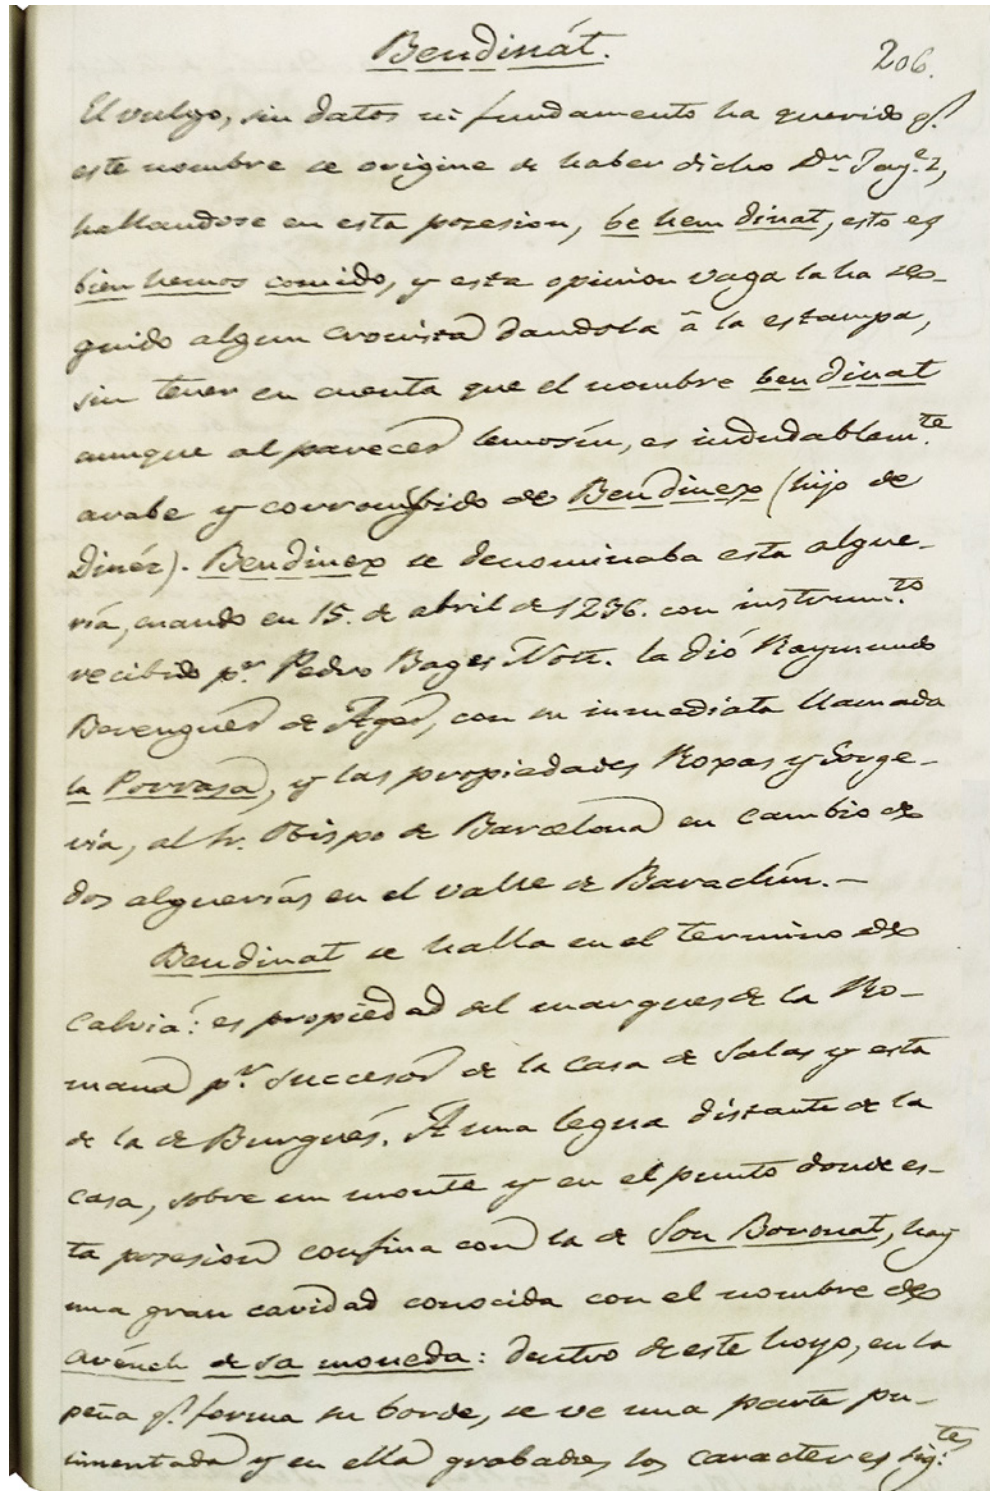 Bendinát.
206.
El vulgo, sin datos ni fundamento ha querido q.
este nombre se origine de haber dicho Dn. Jayᵉ. 1,
hallandose en esta posesion, be hem dinat, esto es
bien hemos comido, y esta opinion vaga la ha se-
guido algun cronista dandola â la estampa,
sin tener en cuenta que el nombre ben dinat
aunque al parecer lemosín, es indudablemᵗᵉ.
arabe y corrompido de Bendinex (hijo de
Dinéx). Bendinex se denominaba esta alque-
ría, cuando en 15. de abril de 1236. con instrumᵗᵒ.
recibido pʳ. Pedro Bages Nott. la dió Raymundo
Berenguer de Ager, con su inmediata llamada
la Porrasa, y las propiedades Roxas y Sorge-
vía, al Sr. Obispo de Barcelona en cambio de
dos alquerías en el valle de Barachín.—
Bendinat se halla en el termino de
Calviá: es propiedad del marques de la Ro-
mana pʳ. succesor de la casa de Salas y esta
de la de Burgués. A una legua distante de la
casa, sobre un monte y en el punto donde es-
ta posesion confina con la de Son Boronat, hay
una gran cavidad conocida con el nombre de
avénch de sa moneda: dentro de este hoyo, en la
peña q. forma su borde, se ve una parte pu-
limentada y en ella grabados los caracteres sigᵗᵉˢ: